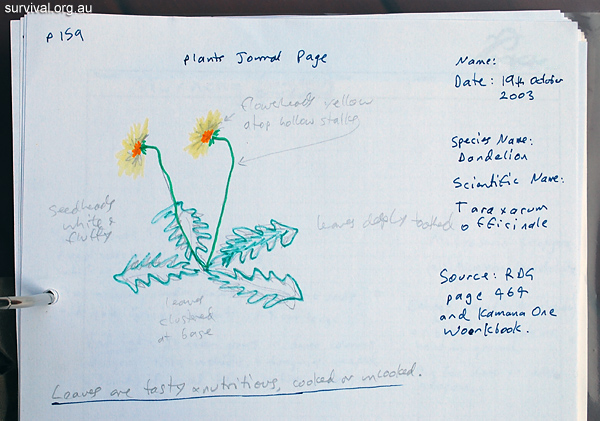 survival.org.au
p 159
Plants Journal Page
Name:
Date: 19th October
2003
flowerheads yellow
atop hollow stalks
Species Name:
Dandelion
Scientific Name:
Taraxarum
officinale
seedheads
white &
fluffy
leaves deeply toothed
leaves
clustered
at base
Source: RDG
page 464
and Kamana One
Workbook.
Leaves are tasty & nutritious, cooked or uncooked.